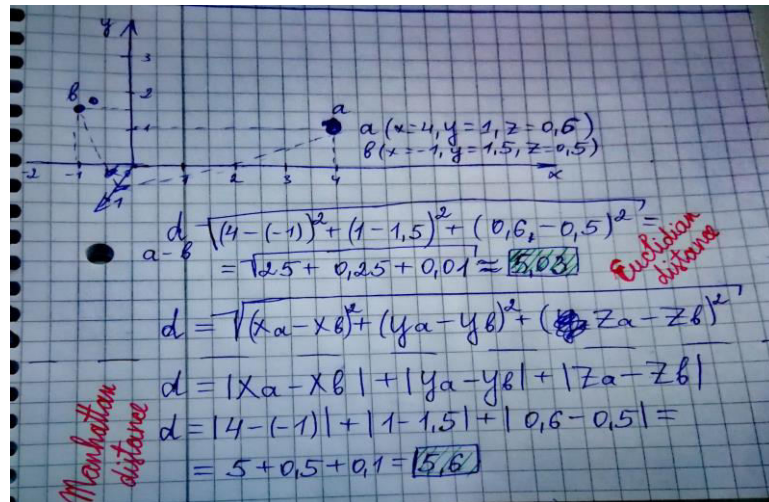 y
3
2
1
b
a
-2 -1 1 2 3 4 x
1
a (x=4, y=1, z=0,6)
b (x=-1, y=1,5, z=0,5)
d a-b √(4-(-1))²+(1-1,5)²+(0,6,-0,5)² =
= √25+0,25+0,01 ≈ 5,03
Euclidian
distance
d = √(xa-xb)²+(ya-yb)²+(za-zb)²
d = |xa-xb|+|ya-yb|+|za-zb|
d = |4-(-1)|+|1-1,5|+|0,6-0,5| =
= 5+0,5+0,1 = 5,6
Manhattan
distance